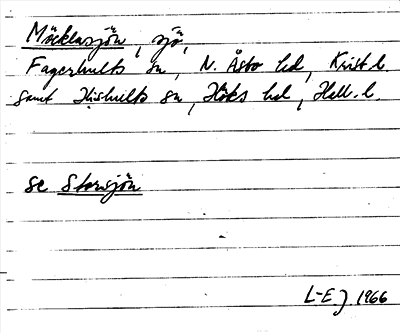 Möcklasjön, sjö,
Fagerhults sn, N. Åsbo hd, Krist. l.
samt Hishults sn, Höks hd, Hall. l.
se Storsjön
L-E.J. 1966